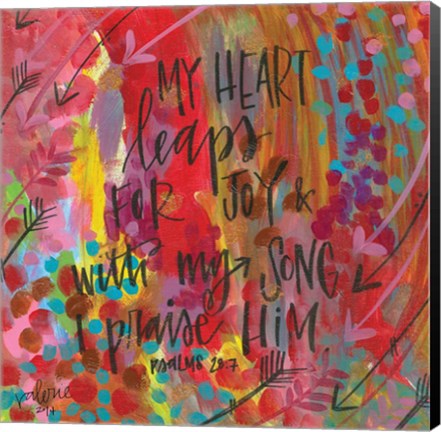 MY HEART
leaps
FOR JOY &
with my SONG
I praise HIM
PSALMS 28:7